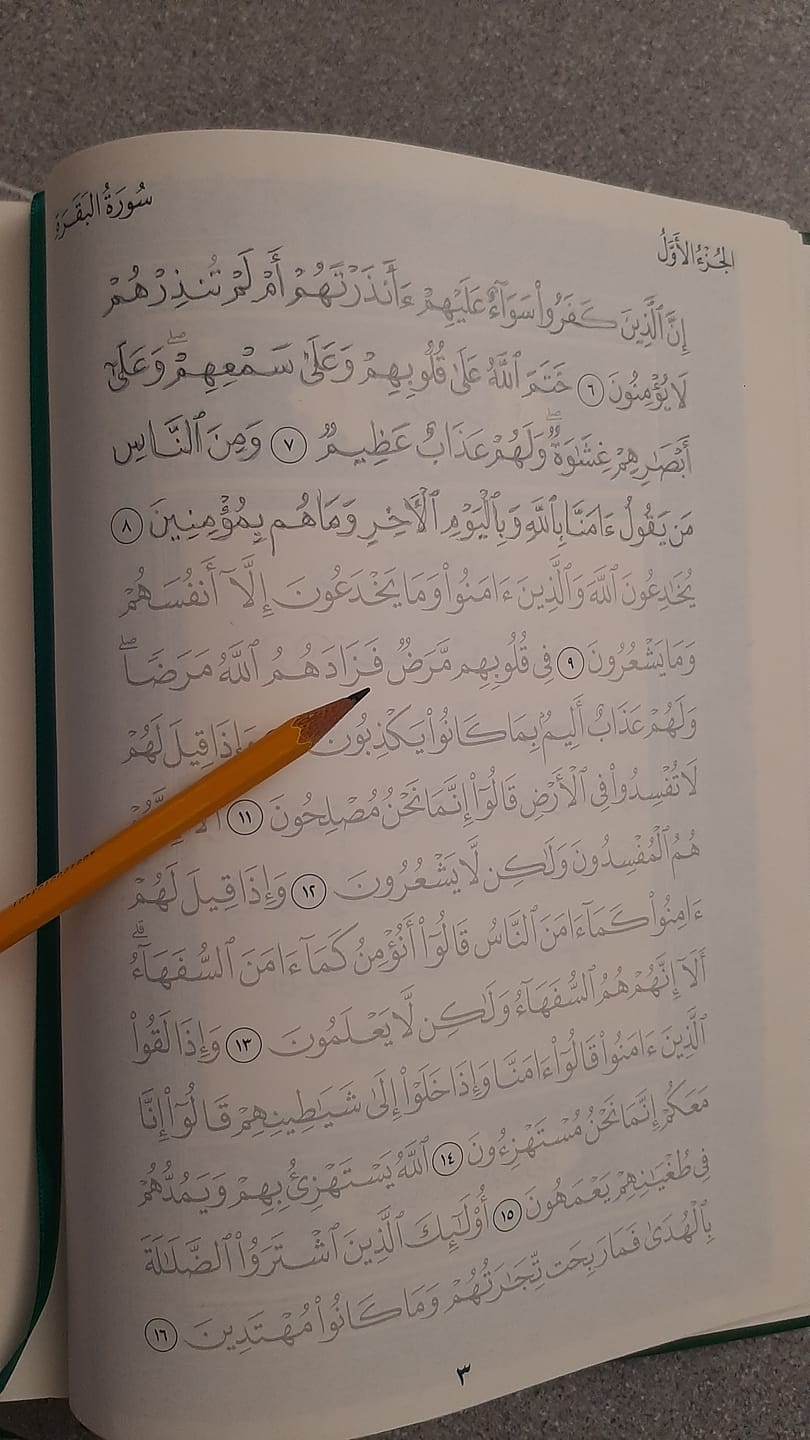 سُورَةُ البَقَرَةِ
الجُزْءُ الأَوَّلُ
إِنَّ ٱلَّذِينَ كَفَرُوا۟ سَوَآءٌ عَلَيْهِمْ ءَأَنذَرْتَهُمْ أَمْ لَمْ تُنذِرْهُمْ
لَا يُؤْمِنُونَ ٦ خَتَمَ ٱللَّهُ عَلَىٰ قُلُوبِهِمْ وَعَلَىٰ سَمْعِهِمْ ۖ وَعَلَىٰٓ
أَبْصَـٰرِهِمْ غِشَـٰوَةٌ ۖ وَلَهُمْ عَذَابٌ عَظِيمٌ ٧ وَمِنَ ٱلنَّاسِ
مَن يَقُولُ ءَامَنَّا بِٱللَّهِ وَبِٱلْيَوْمِ ٱلْـَٔاخِرِ وَمَا هُم بِمُؤْمِنِينَ ٨
يُخَـٰدِعُونَ ٱللَّهَ وَٱلَّذِينَ ءَامَنُوا۟ وَمَا يَخْدَعُونَ إِلَّآ أَنفُسَهُمْ
وَمَا يَشْعُرُونَ ٩ فِى قُلُوبِهِم مَّرَضٌ فَزَادَهُمُ ٱللَّهُ مَرَضًا ۖ
وَلَهُمْ عَذَابٌ أَلِيمٌۢ بِمَا كَانُوا۟ يَكْذِبُونَ وَإِذَا قِيلَ لَهُمْ
لَا تُفْسِدُوا۟ فِى ٱلْأَرْضِ قَالُوٓا۟ إِنَّمَا نَحْنُ مُصْلِحُونَ ١١
هُمُ ٱلْمُفْسِدُونَ وَلَـٰكِن لَّا يَشْعُرُونَ ١٢ وَإِذَا قِيلَ لَهُمْ
ءَامِنُوا۟ كَمَآ ءَامَنَ ٱلنَّاسُ قَالُوٓا۟ أَنُؤْمِنُ كَمَآ ءَامَنَ ٱلسُّفَهَآءُ ۗ
أَلَآ إِنَّهُمْ هُمُ ٱلسُّفَهَآءُ وَلَـٰكِن لَّا يَعْلَمُونَ ١٣ وَإِذَا لَقُوا۟
ٱلَّذِينَ ءَامَنُوا۟ قَالُوٓا۟ ءَامَنَّا وَإِذَا خَلَوْا۟ إِلَىٰ شَيَـٰطِينِهِمْ قَالُوٓا۟ إِنَّا
مَعَكُمْ إِنَّمَا نَحْنُ مُسْتَهْزِءُونَ ١٤ ٱللَّهُ يَسْتَهْزِئُ بِهِمْ وَيَمُدُّهُمْ
فِى طُغْيَـٰنِهِمْ يَعْمَهُونَ ١٥ أُو۟لَـٰٓئِكَ ٱلَّذِينَ ٱشْتَرَوُا۟ ٱلضَّلَـٰلَةَ
بِٱلْهُدَىٰ فَمَا رَبِحَت تِّجَـٰرَتُهُمْ وَمَا كَانُوا۟ مُهْتَدِينَ ١٦
٣